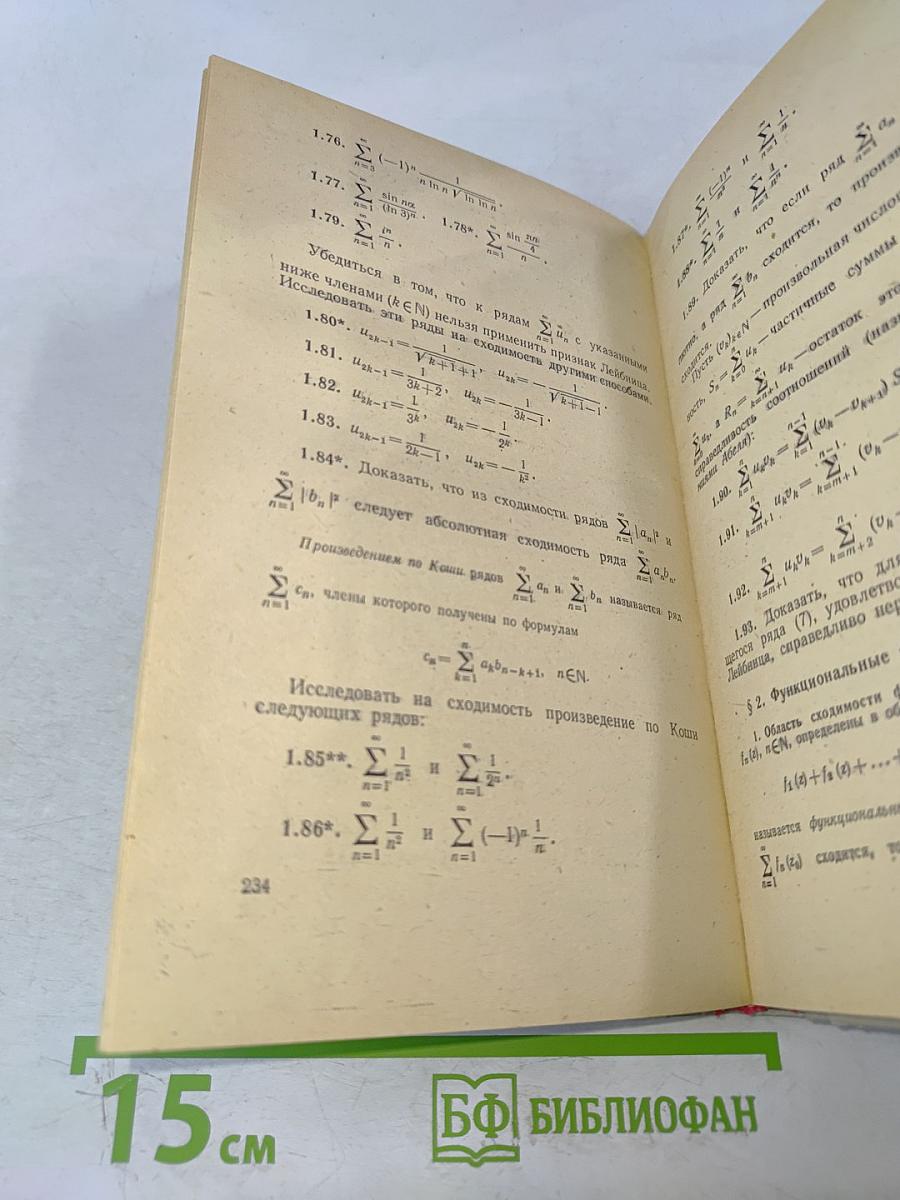 1.76. ∑_{n=3}^{∞} (−1)ⁿ 1/(n ln n √(ln ln n)).
1.77. ∑_{n=1}^{∞} sin nα/(ln 3)ⁿ. 1.78*. ∑_{n=1}^{∞} sin(πn/4)/n.
1.79. ∑_{n=1}^{∞} iⁿ/n.
Убедиться в том, что к рядам ∑_{n=1}^{∞} uₙ с указанными
ниже членами (k∈ℕ) нельзя применить признак Лейбница.
Исследовать эти ряды на сходимость другими способами.
1.80*. u_{2k−1} = 1/(√(k+1)+1), u_{2k} = −1/(√(k+1)−1).
1.81. u_{2k−1} = 1/(3k+2), u_{2k} = −1/(3k−1).
1.82. u_{2k−1} = 1/3ᵏ, u_{2k} = −1/2ᵏ.
1.83. u_{2k−1} = 1/(2k−1), u_{2k} = −1/k².
1.84*. Доказать, что из сходимости рядов ∑_{n=1}^{∞} |aₙ|² и
∑_{n=1}^{∞} |bₙ|² следует абсолютная сходимость ряда ∑_{n=1}^{∞} aₙbₙ.
Произведением по Коши рядов ∑_{n=1}^{∞} aₙ и ∑_{n=1}^{∞} bₙ называется ряд
∑_{n=1}^{∞} cₙ, члены которого получены по формулам
cₙ = ∑_{k=1}^{n} aₖb_{n−k+1}, n∈ℕ.
Исследовать на сходимость произведение по Коши
следующих рядов:
1.85**. ∑_{n=1}^{∞} 1/n² и ∑_{n=1}^{∞} 1/2ⁿ.
1.86*. ∑_{n=1}^{∞} 1/n² и ∑_{n=1}^{∞} (−1)ⁿ 1/n.
234
1.87*. ∑_{n=1}^{∞} и ∑_{n=1}^{∞} 1/n.
1.88*. ∑_{n=1}^{∞} 1/n и ∑_{n=1}^{∞}
1.89. Доказать, что если ряд ∑_{n=1}^{∞} aₙ
а ряд ∑_{n=1}^{∞} bₙ сходится, то
сходится.
Пусть (vₖ)_{k∈ℕ} — произвольная
Sₙ = ∑_{k=0}^{n} uₖ — частичные суммы
а Rₙ = ∑_{k=n+1}^{∞} uₖ — остаток
справедливость соотношений
Абеля):
1.90. ∑_{k=1}^{n} uₖvₖ = ∑_{k=1}^{n−1} (vₖ − v_{k+1}) S
1.91. ∑_{k=m+1}^{n} uₖvₖ = ∑_{k=m+1}^{n−1} (vₖ −
1.92. ∑_{k=m+1}^{n} uₖvₖ = ∑_{k=m+2}^{n} (vₖ
1.93. Доказать, что для
щегося ряда (7),
Лейбница, справедливо
§ 2. Функциональные
1. Область сходимости
fₙ(z), n∈ℕ, определены в
f₁(z)+f₂(z)+...+
называется
∑_{n=1}^{∞} fₙ(z₀) сходится,
15 см
БФ БИБЛИОФАН